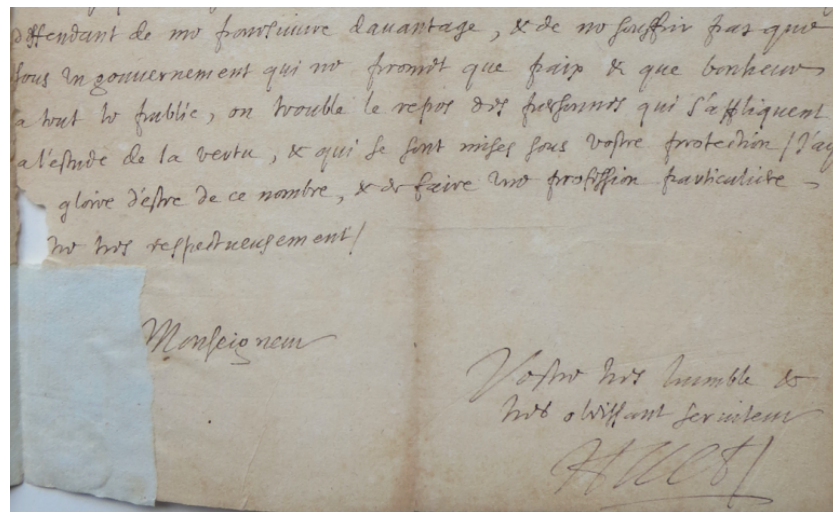 deffendant de me poursuivre davantage, & de ne souffrir pas que
sous un gouvernement qui ne promet que paix & que bonheur
a tout le public, on trouble le repos des personnes qui s'appliquent
a l'estude de la vertu, & qui se sont mises sous vostre protection / J'ay
gloire d'estre de ce nombre, & de faire une profession particuliere
tres respectueusement /
Monseigneur
Vostre tres humble &
tres obeissant serviteur
Huet